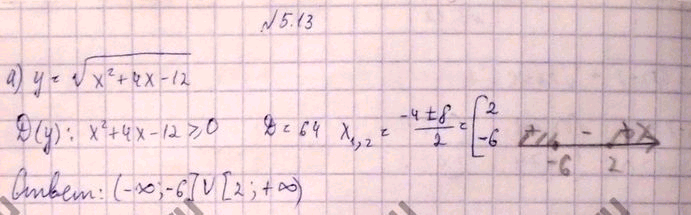 №5.13
а) y = √(x²+4x-12)
D(y): x²+4x-12 ≥ 0 D = 64 x₁,₂ = (-4±8)/2 = [2 -6 + - + x
-6 2
Ответ: (-∞; -6] ∪ [2; +∞)